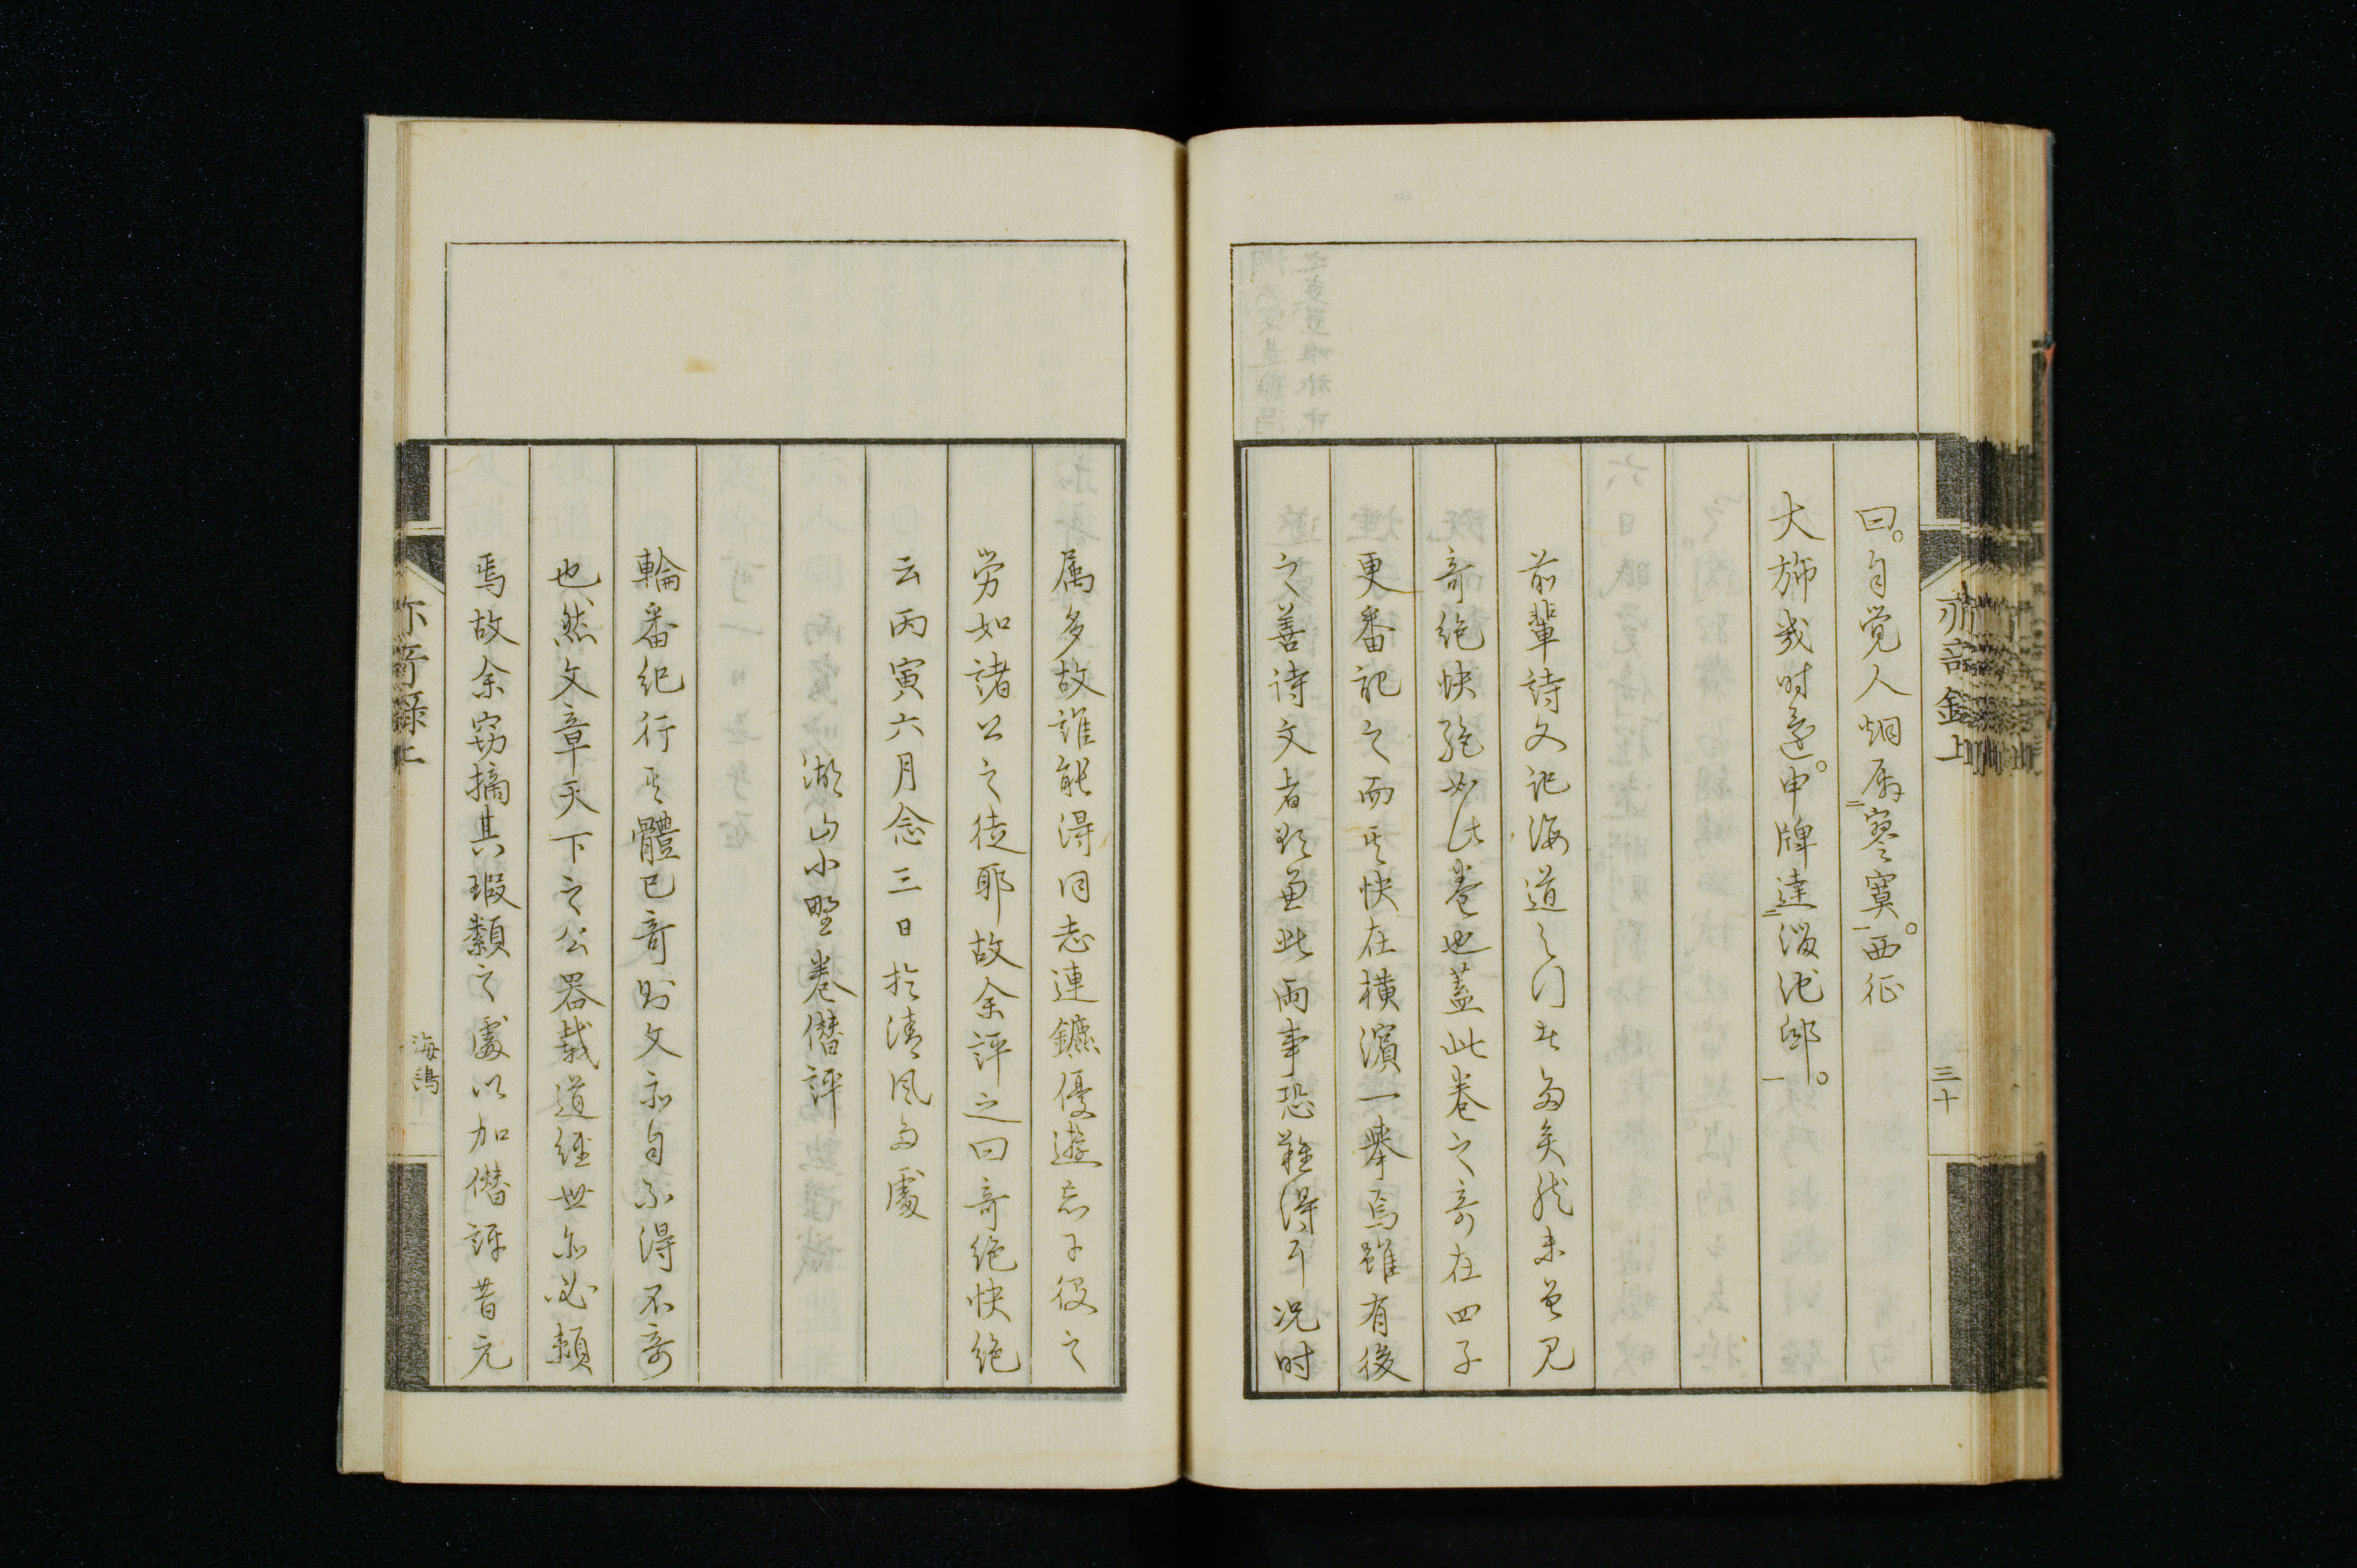 曰。自覚人烟属寥寞。西征
大旆幾时還。申牌達淄池郵。
前輩詩文記海道之行者多矣然未曽見
奇絶快絶如此巻也蓋此巻之奇在四子
更番記之而其快在横濵一擧焉雖有後
之善詩文者欲兼此兩事恐難得耳况时
属多故誰能得同志連鑣優遊忘子役之
労如諸公之徒耶故余評之曰奇絶快絶
云丙寅六月念三日於清風多處
湖山小埜巻僭評
輪番紀行其體已奇則文亦自不得不奇
也然文章天下之公器载道經世亦必頼
焉故余窃摘其瑕纇之處以加僭評昔元
亦奇録上
三十
亦奇録上
海鴎